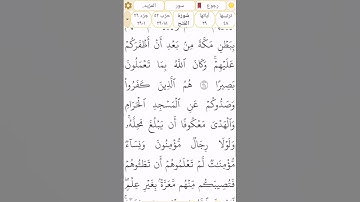 رجوع سور المزيد..
ترتيبها آياتها سورة حزب ٥٢ جزء ٢٦
٤٨ ٢٩ الفتح ١٨-٢٩ ١-٢٩
بِبَطْنِ مَكَّةَ مِنۢ بَعْدِ أَنْ أَظْفَرَكُمْ
عَلَيْهِمْ ۚ وَكَانَ ٱللَّهُ بِمَا تَعْمَلُونَ
بَصِيرًا ۝٢٤ هُمُ ٱلَّذِينَ كَفَرُوا۟
وَصَدُّوكُمْ عَنِ ٱلْمَسْجِدِ ٱلْحَرَامِ
وَٱلْهَدْىَ مَعْكُوفًا أَن يَبْلُغَ مَحِلَّهُۥ ۚ
وَلَوْلَا رِجَالٌ مُّؤْمِنُونَ وَنِسَآءٌ
مُّؤْمِنَـٰتٌ لَّمْ تَعْلَمُوهُمْ أَن تَطَـُٔوهُمْ
فَتُصِيبَكُم مِّنْهُم مَّعَرَّةٌۢ بِغَيْرِ عِلْمٍ ۖ